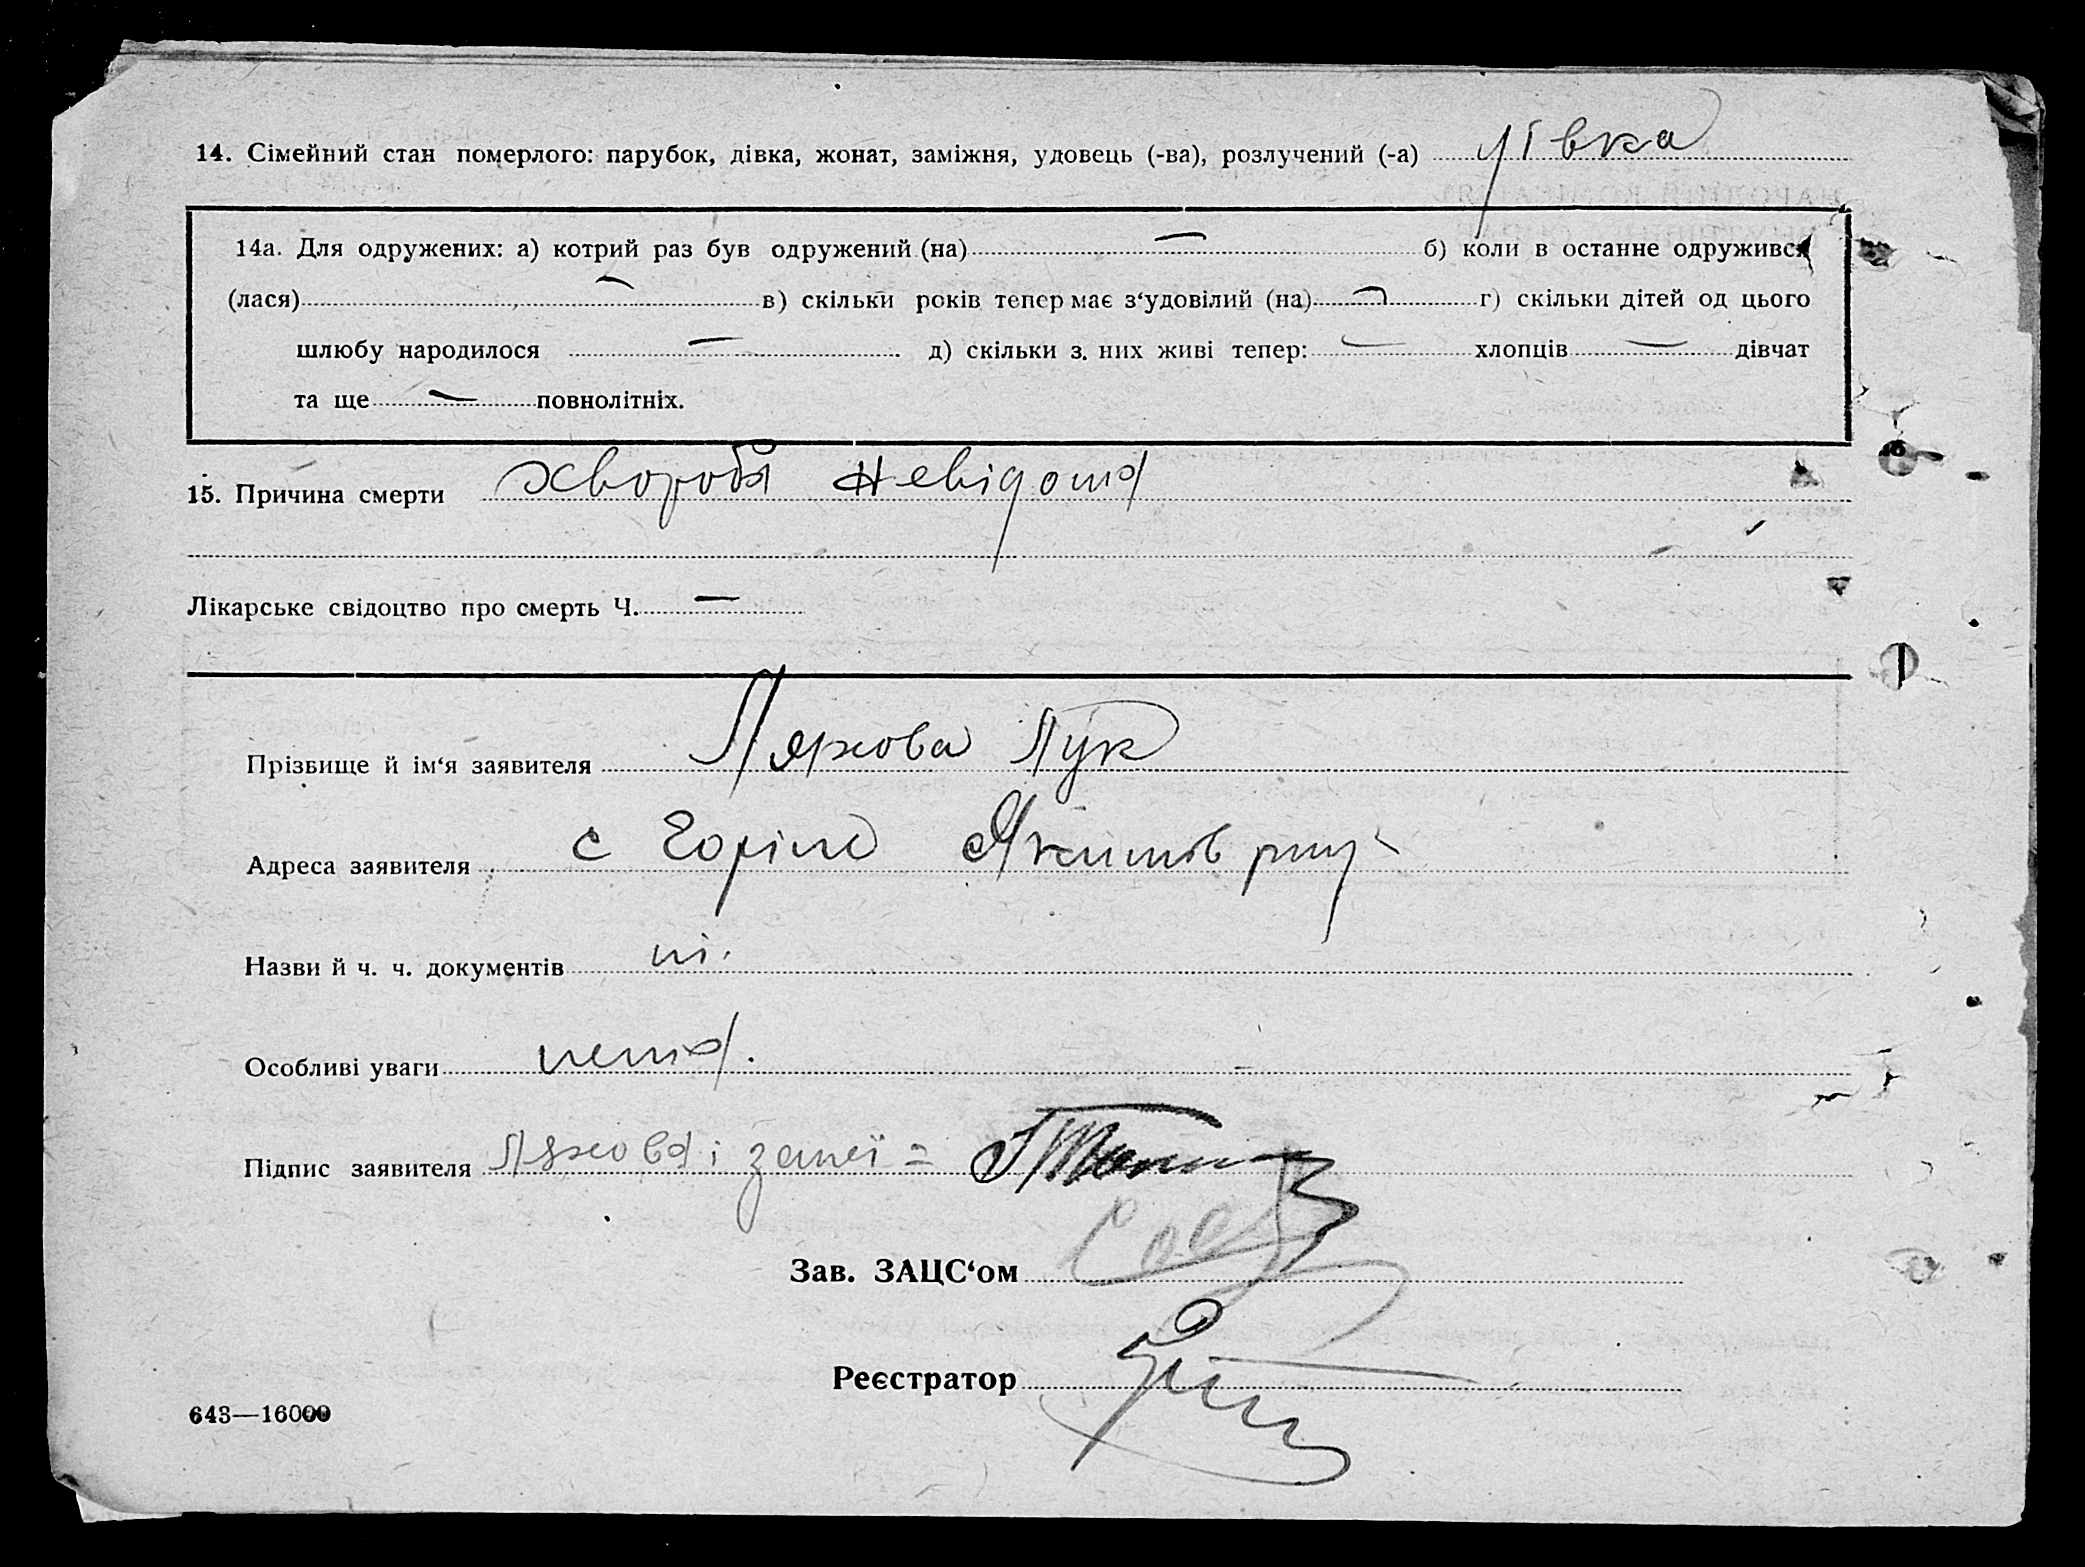 14. Сімейний стан померлого: парубок, дівка, жонат, заміжня, удовець (-ва), розлучений (-а) дівка
14а. Для одружених: а) котрий раз був одружений (на) — б) коли в останнє одружився
(лася) — в) скільки років тепер має з‘удовілий (на) — г) скільки дітей од цього
шлюбу народилося — д) скільки з них живі тепер: — хлопців — дівчат
та ще — повнолітніх.
15. Причина смерти хвороба невідома
Лікарське свідоцтво про смерть Ч. —
Прізвище й ім‘я заявителя Ляхова Лук
Адреса заявителя с Горіле Якимов
Назви й ч. ч. документів ні.
Особливі уваги нема.
Підпис заявителя Ляхова і
Зав. ЗАЦС‘ом
Реєстратор
643—16000